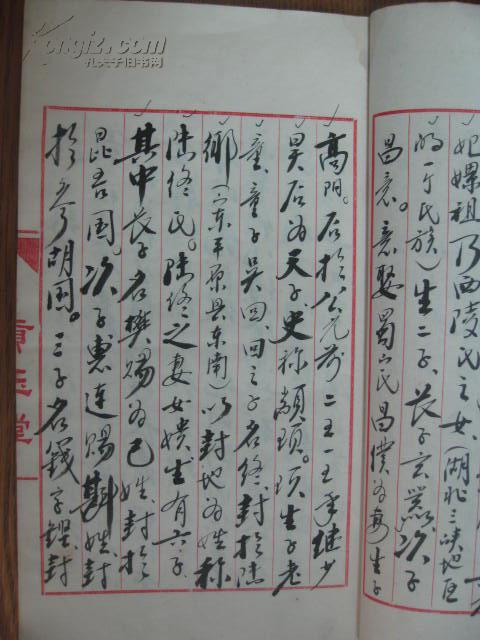 妃嫘祖乃西陵氏之女(湖北三峡地区
的一个氏族)生二子。长子玄嚣。次子
昌意。意娶蜀山氏昌仆为妻生子
高阳。后于公元前二五一五年继少
昊后为天子。史称颛顼。顼生子老
童。童子吴回。回之子名终。封于陆
乡(山东平原县东南)以封地为姓称
陆终氏。陆终之妻女嬇生有六子。
其中长子名樊赐为己姓。封于
昆吾国。次子惠连赐斟姓。封
于参胡国。三子名籛字铿。封
堂
kongfz.com
孔夫子旧书网